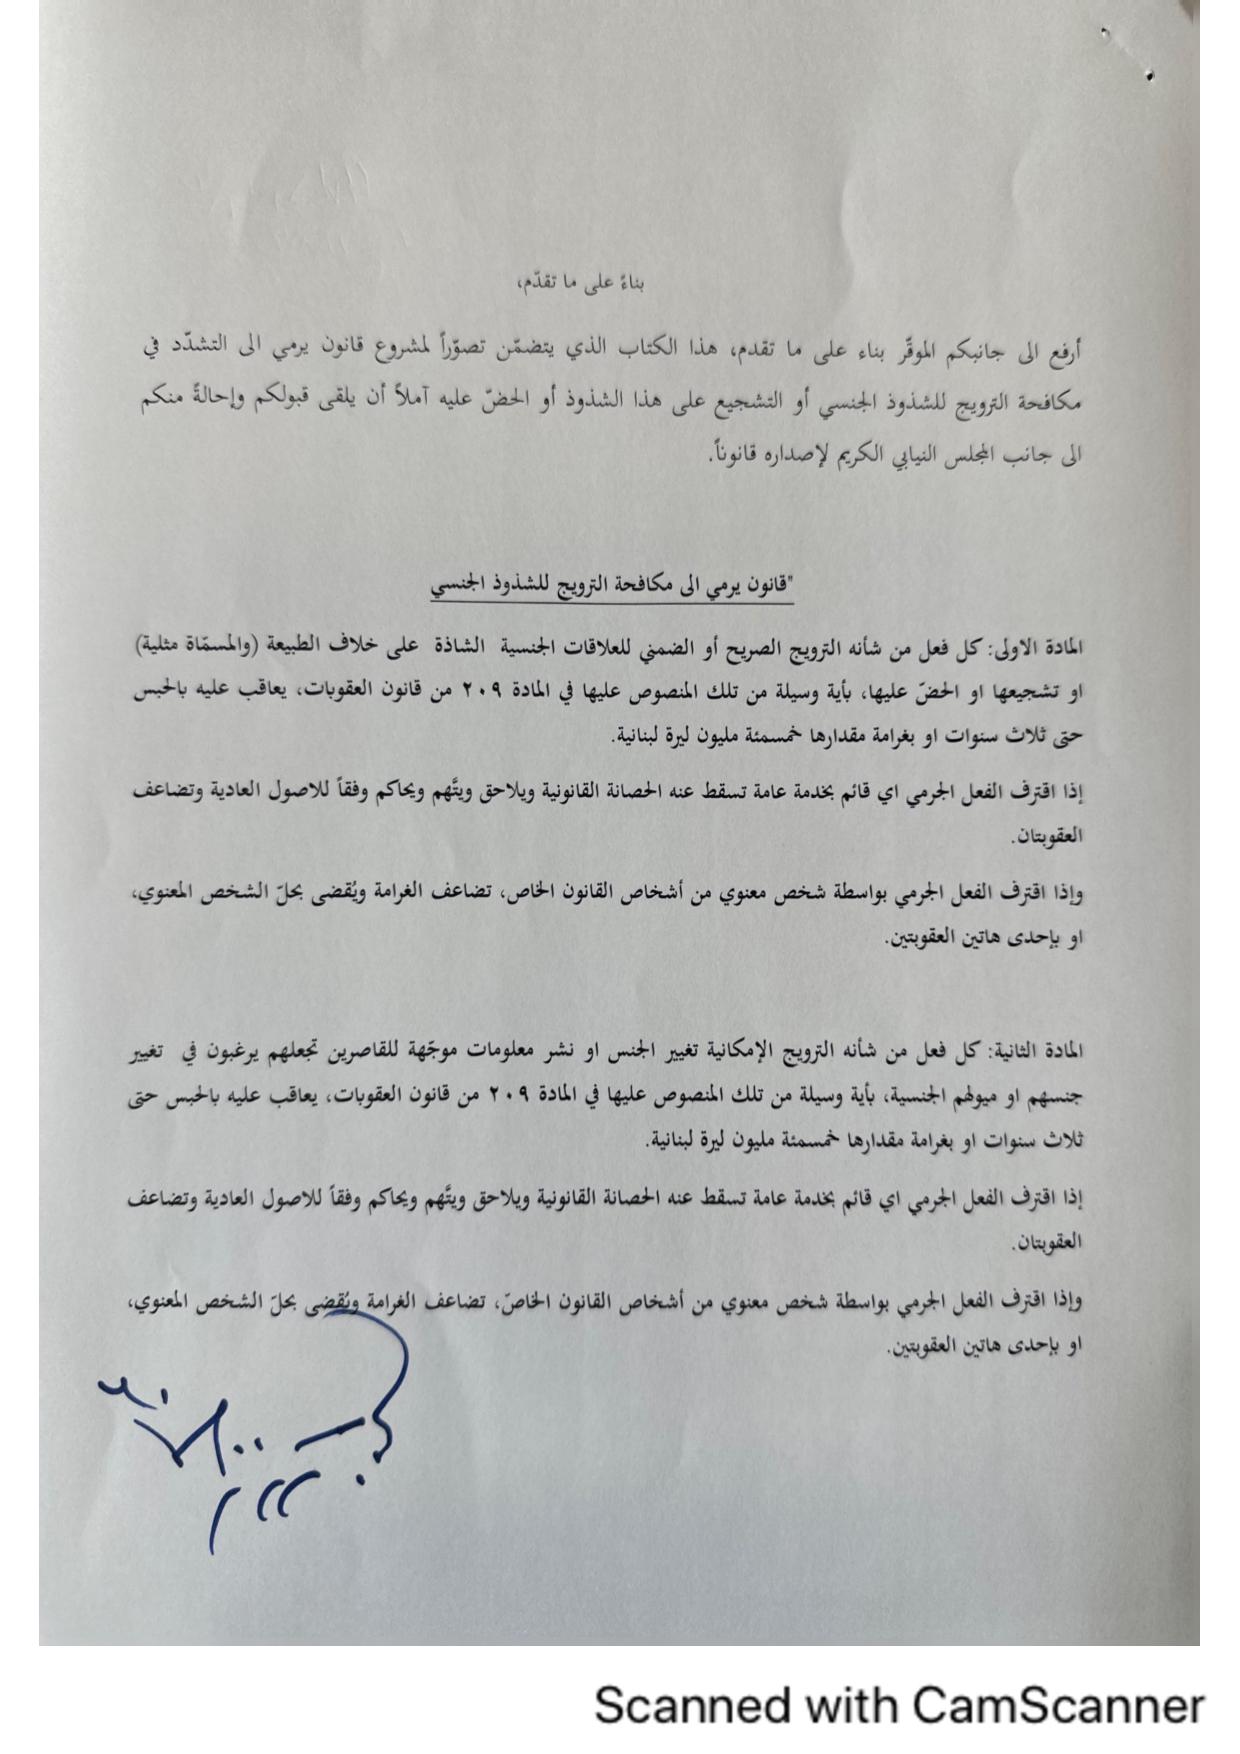 بناءً على ما تقدّم،
أرفع الى جانبكم الموقّر بناء على ما تقدم، هذا الكتاب الذي يتضمّن تصوّراً لمشروع قانون يرمي الى التشدّد في
مكافحة الترويج للشذوذ الجنسي أو التشجيع على هذا الشذوذ أو الحضّ عليه آملاً أن يلقى قبولكم وإحالةً منكم
الى جانب المجلس النيابي الكريم لإصداره قانوناً.
"قانون يرمي الى مكافحة الترويج للشذوذ الجنسي
المادة الاولى: كل فعل من شأنه الترويج الصريح أو الضمني للعلاقات الجنسية الشاذة على خلاف الطبيعة (والمسمّاة مثلية)
او تشجيعها او الحضّ عليها، بأية وسيلة من تلك المنصوص عليها في المادة ٢٠٩ من قانون العقوبات، يعاقب عليه بالحبس
حتى ثلاث سنوات او بغرامة مقدارها خمسمئة مليون ليرة لبنانية.
إذا اقترف الفعل الجرمي اي قائم بخدمة عامة تسقط عنه الحصانة القانونية ويلاحق ويتَّهم ويحاكم وفقاً للاصول العادية وتضاعف
العقوبتان.
وإذا اقترف الفعل الجرمي بواسطة شخص معنوي من أشخاص القانون الخاص، تضاعف الغرامة ويُقضى بحلّ الشخص المعنوي،
او بإحدى هاتين العقوبتين.
المادة الثانية: كل فعل من شأنه الترويج الإمكانية تغيير الجنس او نشر معلومات موجّهة للقاصرين تجعلهم يرغبون في تغيير
جنسهم او ميولهم الجنسية، بأية وسيلة من تلك المنصوص عليها في المادة ٢٠٩ من قانون العقوبات، يعاقب عليه بالحبس حتى
ثلاث سنوات او بغرامة مقدارها خمسمئة مليون ليرة لبنانية.
إذا اقترف الفعل الجرمي اي قائم بخدمة عامة تسقط عنه الحصانة القانونية ويلاحق ويتَّهم ويحاكم وفقاً للاصول العادية وتضاعف
العقوبتان.
وإذا اقترف الفعل الجرمي بواسطة شخص معنوي من أشخاص القانون الخاصّ، تضاعف الغرامة ويُقضى بحلّ الشخص المعنوي،
او بإحدى هاتين العقوبتين.
Scanned with CamScanner